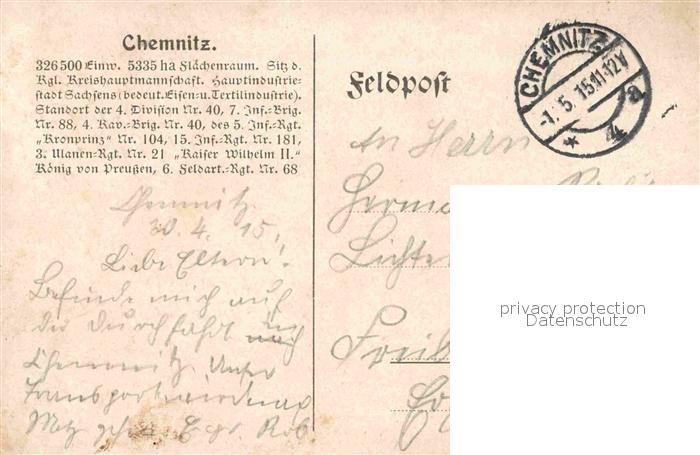 Chemnitz.
326500 Einw. 5335 ha Flächenraum. Sitz d.
Kgl. Kreishauptmannschaft. Hauptindustrie-
stadt Sachsens (bedeut. Eisen- u. Textilindustrie).
Standort der 4. Division Nr. 40, 7. Inf.-Brig.
Nr. 88, 4. Kav.-Brig. Nr. 40, des 5. Inf.-Rgt.
„Kronprinz" Nr. 104, 15. Inf.-Rgt. Nr. 181,
3. Ulanen-Rgt. Nr. 21 „Kaiser Wilhelm II."
König von Preußen, 6. Feldart.-Rgt. Nr. 68
Chemnitz.
30. 4. 15.
Liebe Eltern!
Befinde mich auf
die Durchfahrt in
Chemnitz. Unser
Transport wird nach
Metz gehen. E. gr. Rob.
Feldpost
CHEMNITZ
-1. 5. 15. 11-12V
* 4 a
An Herrn
privacy protection
Datenschutz